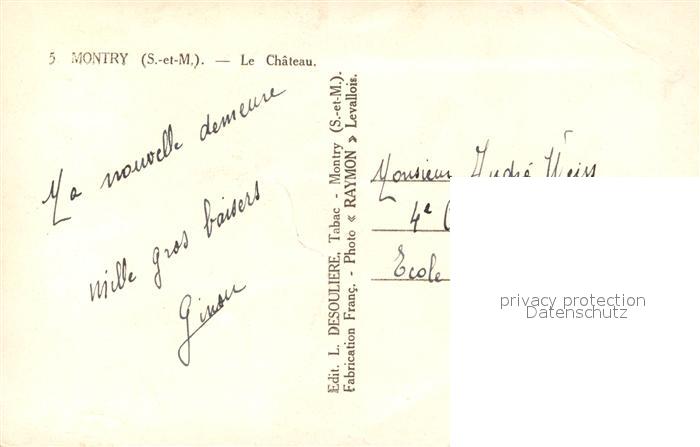 5 MONTRY (S.-et-M.). — Le Château.
Ma nouvelle demeure
mille gros baisers
Edit. L. DESOULIERE, Tabac - Montry (S.-et-M.).
Fabrication Franç. - Photo « RAYMON » Levallois.
Monsieur André Weiss
4e
Ecole
privacy protection
Datenschutz